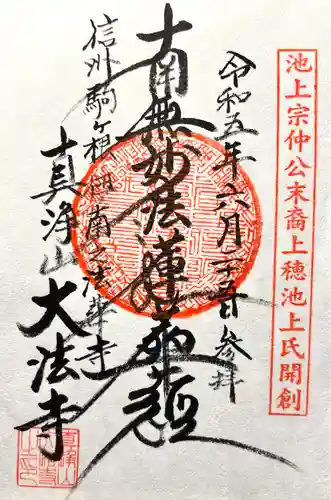 池上宗仲公末裔上穂池上氏開創
令和五年六月二十五日参拝
南無妙法蓮華経
信州駒ヶ根
法華寺
真浄山大法寺